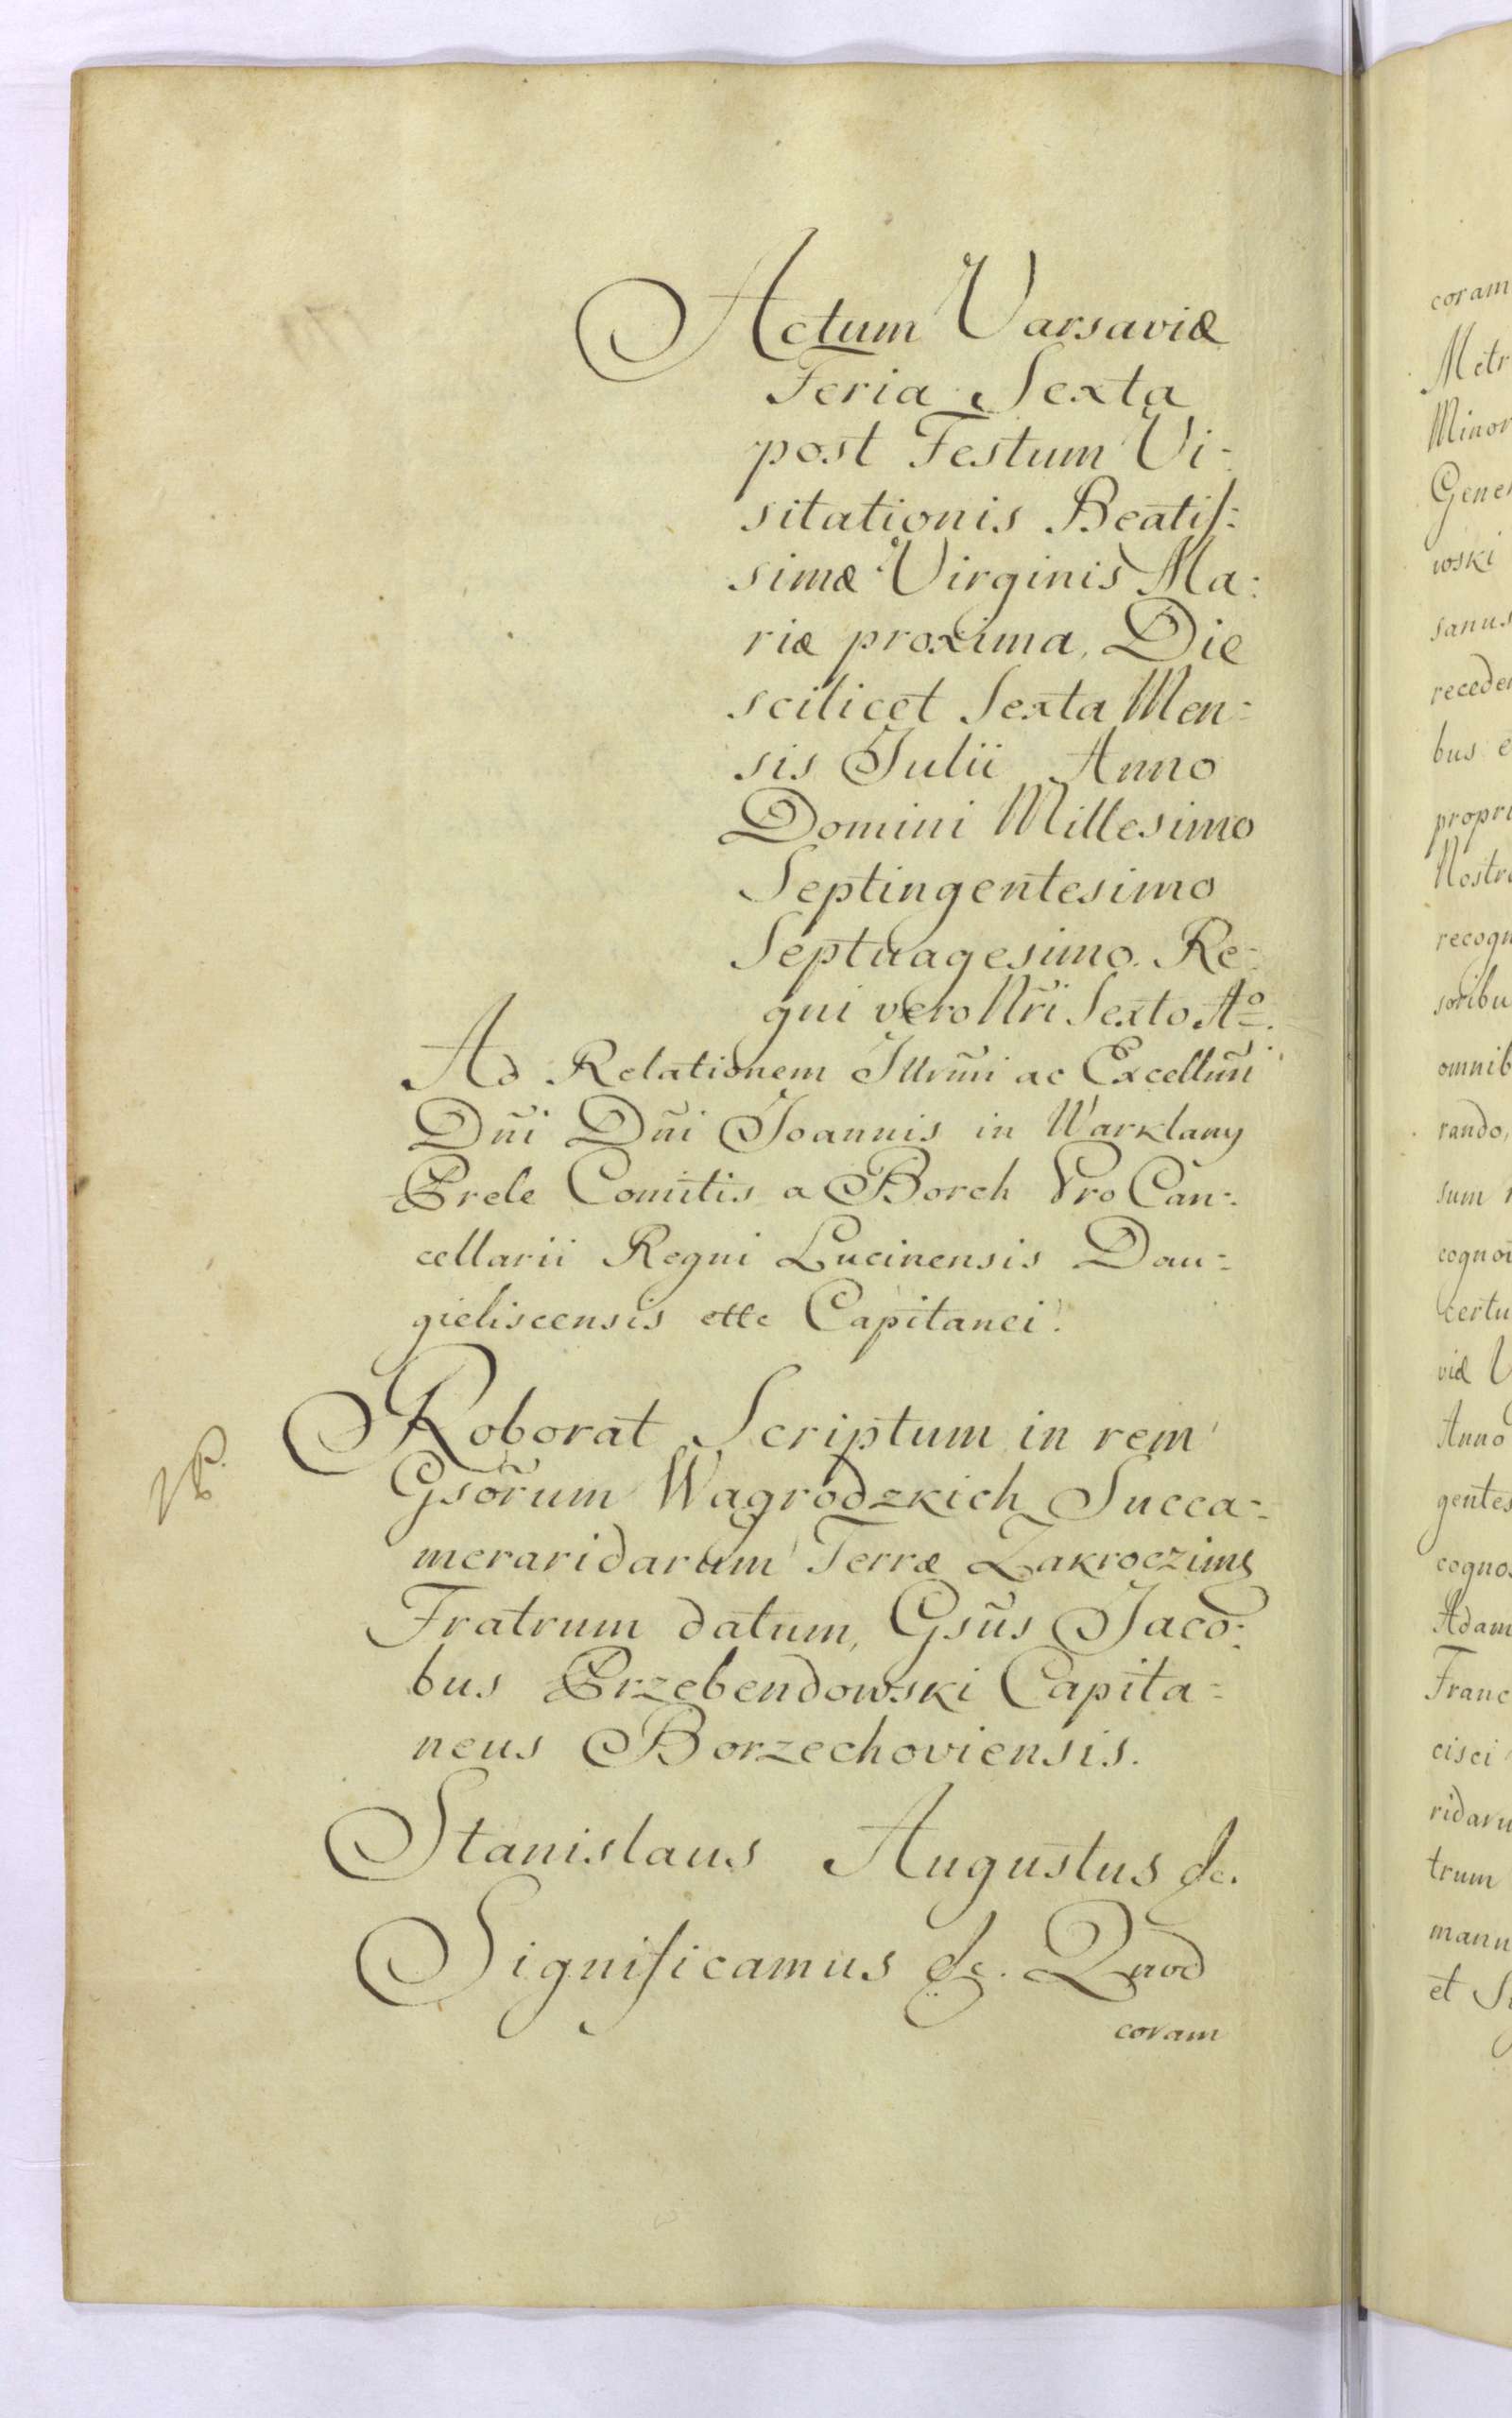 Actum Varsaviæ
Feria Sexta
post Festum Vi-
sitationis Beatis-
simæ Virginis Ma-
riæ proxima, Die
scilicet Sexta Men-
sis Julii Anno
Domini Millesimo
Septingentesimo
Septuagesimo. Re-
gni vero Nri Sexto Aº.
Ad Relationem Illrmi ac Excellmi
Dni Dni Joannis in Warklany
Prele Comitis a Borch ProCan-
cellarii Regni Lucinensis Dau-
gieliscensis ettc Capitanei.
Roborat Scriptum in rem
Gsorum Wagrodzkich Succa-
meraridarum Terræ Zakroczims
Fratrum datum, Gsus Jaco-
bus Przebendowski Capita-
neus Borzechoviensis.
Stanislaus Augustus &c.
Significamus &c. Quod
coram
coram
Metr
Minor
Gener
wski
sanus
receden
bus e
propri
Nostra
recogn
soribu
omnib
rando,
sum
cognoi
certu
viæ V
Anno
gentes
cognos
Adam
Franc
cisci
ridaru
trum
manu
et